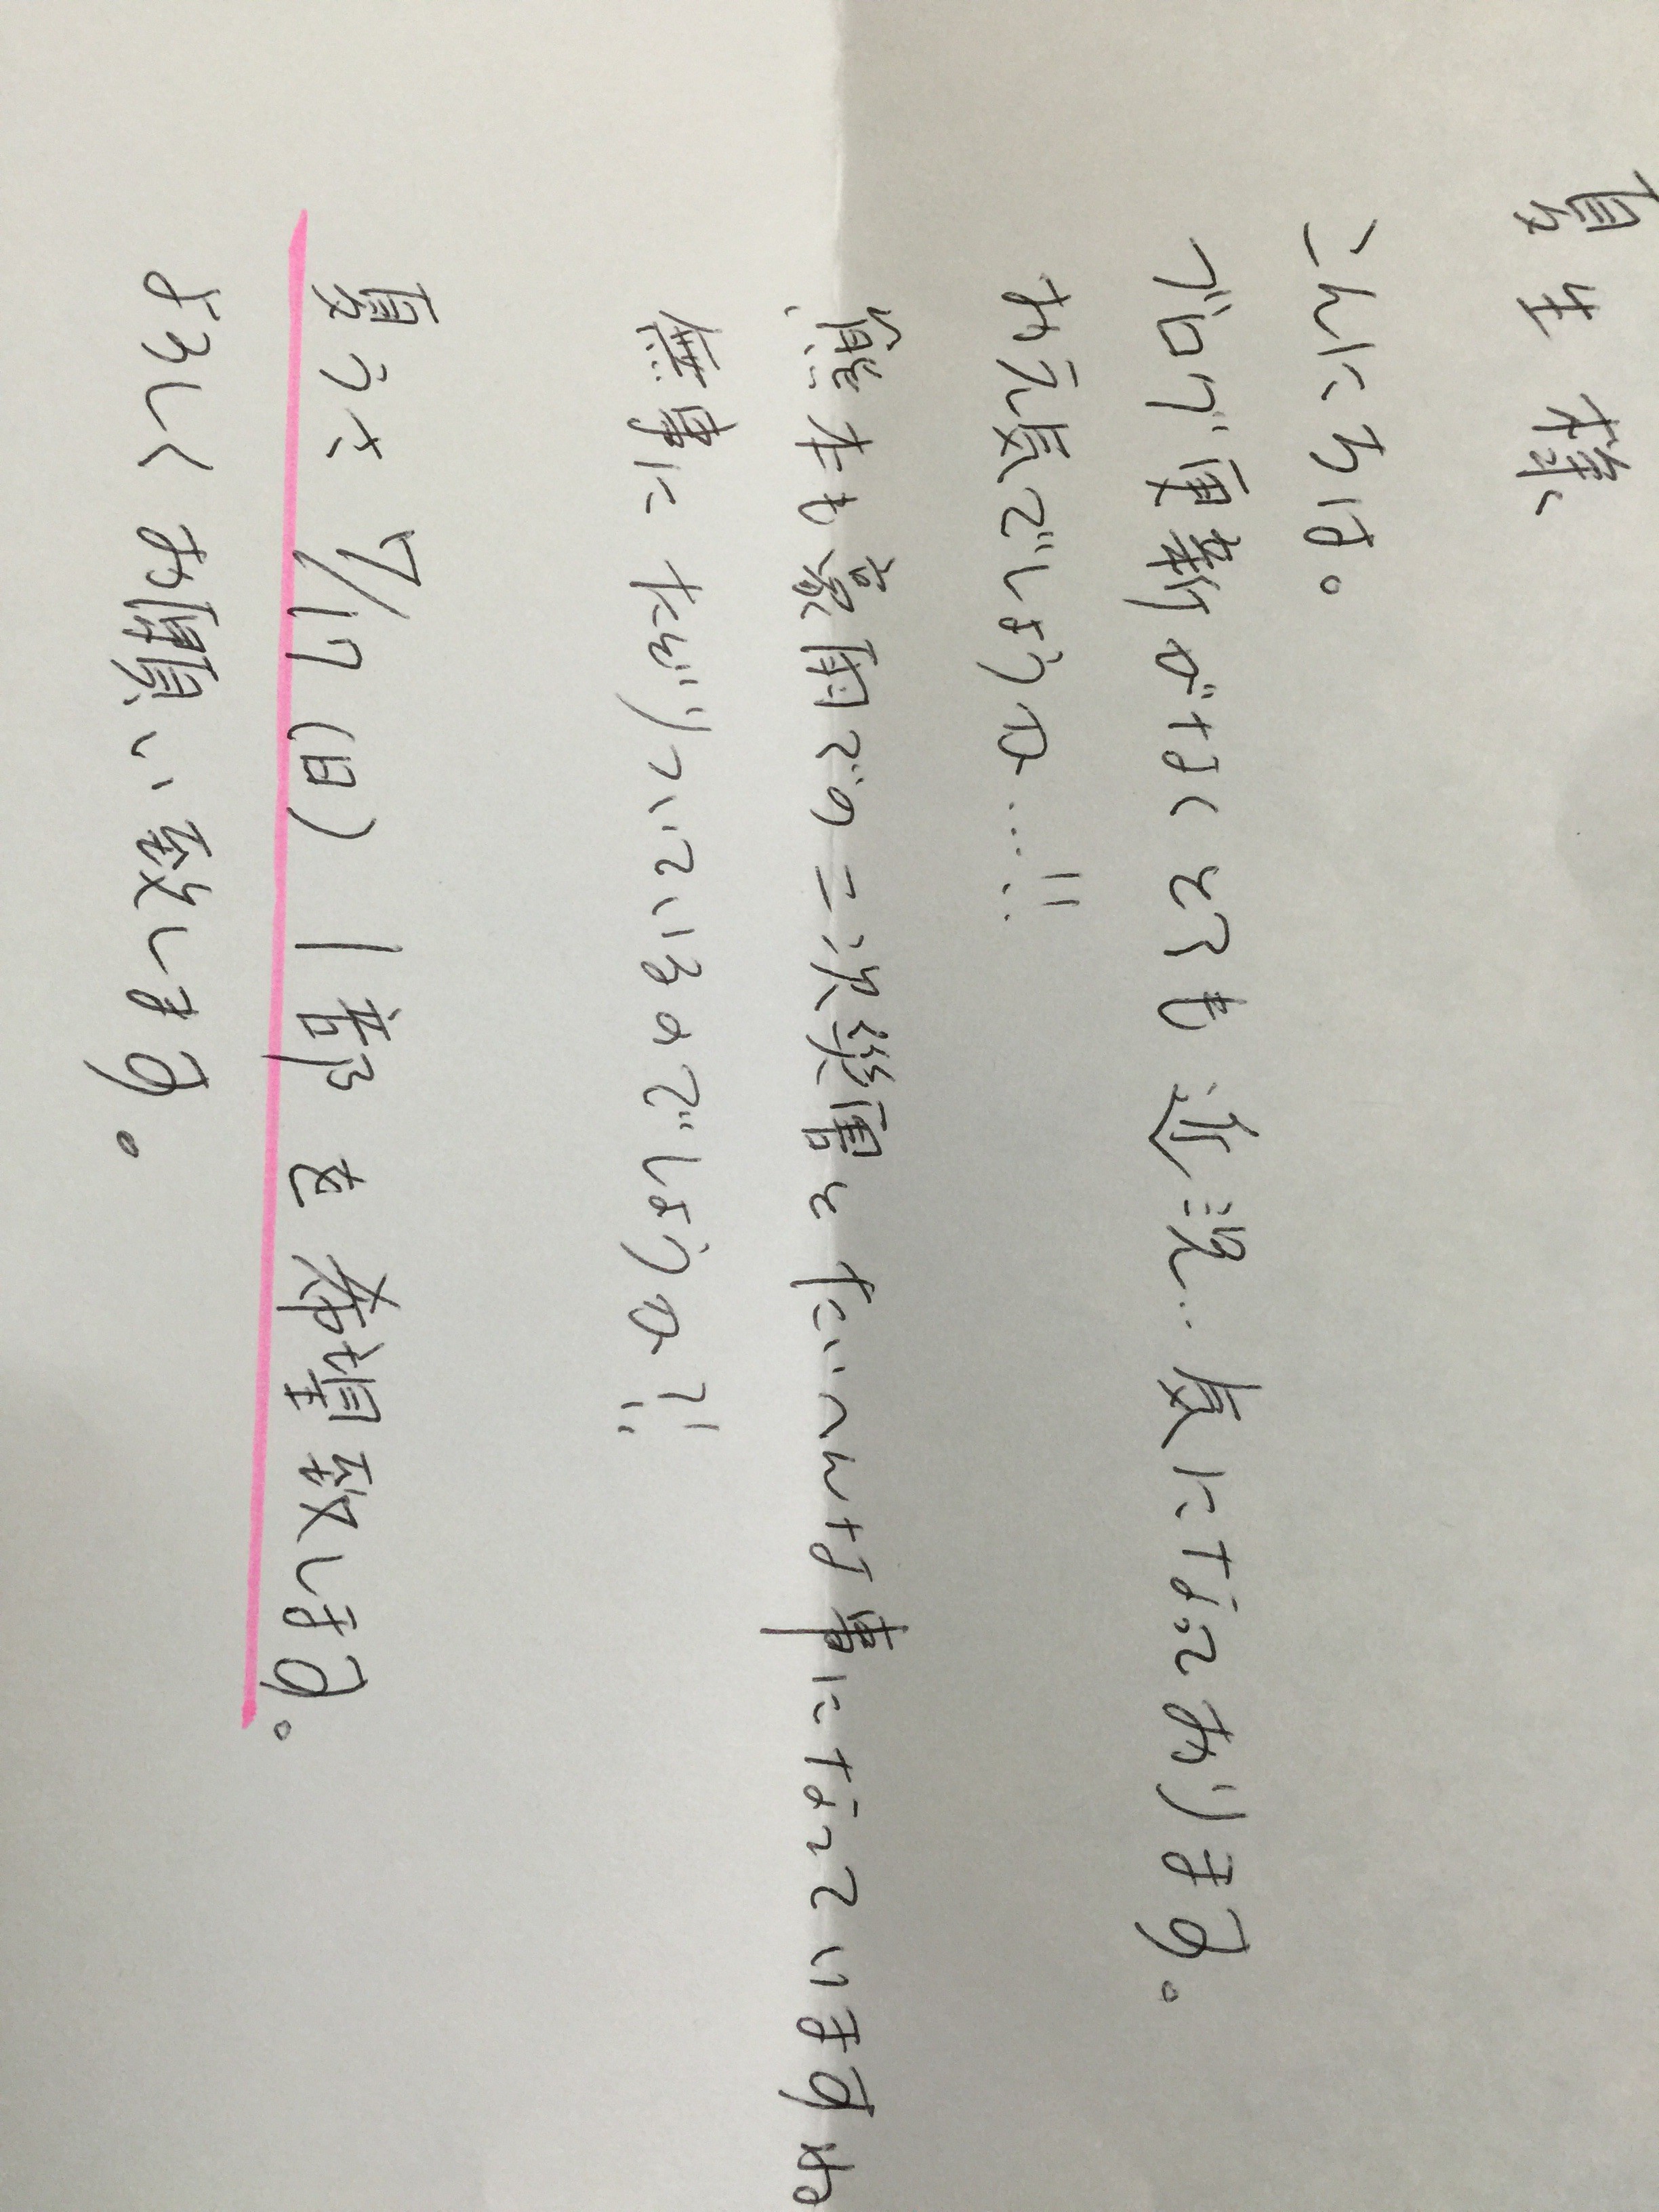 夏生様
こんにちは。
ブログ更新がなくとても近況‥気になっております。
お元気でしょうか…!!
熊本も豪雨での二次災害とたいへんな事になっていますね
無事にたどりついているのでしょうか?!
夏うさ 7/17(日) 1部を希望致します。
よろしくお願い致します。